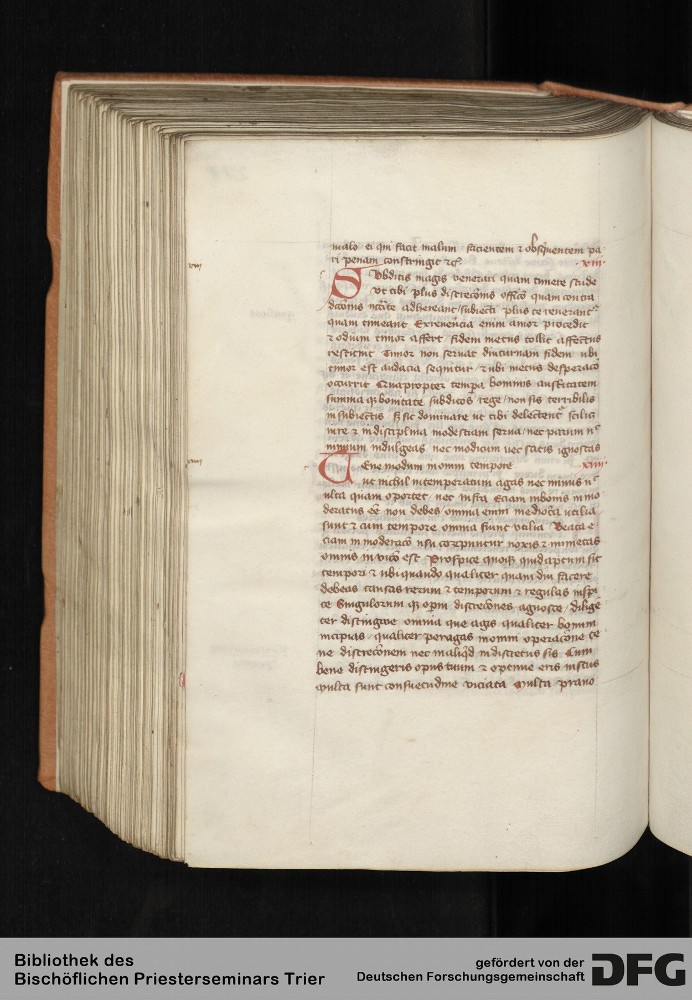 malo ei qui facit malum facientem ⁊ obsequentem pa
ri penam constringit ⁊c̃
xiii
viii
Subditis magis venerari quam timere stude
Vt tibi plus discrecōnis officō quam condicōnis
adhereant subiecti plus te venerant᷑
quam timeant Ex reverencia enim amor procedit
⁊ odium timor affert fidem metus tollit affectus
restituit Timor non servat diuturnam fidem ubi
timor est audacia sequitur ⁊ ubi metus desperacō
occurrit Quapropter tempa bonitatis austeritatem
summa q̨ bonitate subditos rege non sis terribilis
in subiectis Sic dominare ut tibi delectent᷑
iure ⁊ in disciplina modestiam serva nec parum n̄
nimium indulgeas nec modicum nec satis ignoscas
xiiii
viiii
Tene modum in omni tempore
ut nichil intemperatum agas nec minus n̄
ulta quam oportet nec iusta Eciam in bonis in mo
deratus eē non debes omnia enim mediocra utilia
sunt ⁊ cum tempore omnia fiunt utilia Beata e
ciam in moderacō usu corrpuntur noxis ⁊ nimietas
omnis in vicō est Prospice quoq̨ quid aptum sit
tempori ⁊ ubi quando qualiter quam diu facere
debeas causas rerum ⁊ temporum ⁊ regulas inspi
ce Singulorum q̨ opm̄ discrecōnes agnosce dilige
ter distingwe omnia que agis qualiter bonum
incipias qualiter peragas in omni operacōne te
ne discrecōnem nec in aliq̄d indiscretus sis Cum
bene distingeris opus tuum ⁊ optime eris iustus
Multa sunt consuetudine viciata Multa pravo
Bibliothek des
Bischöflichen Priesterseminars Trier
gefördert von der
Deutschen Forschungsgemeinschaft
DFG